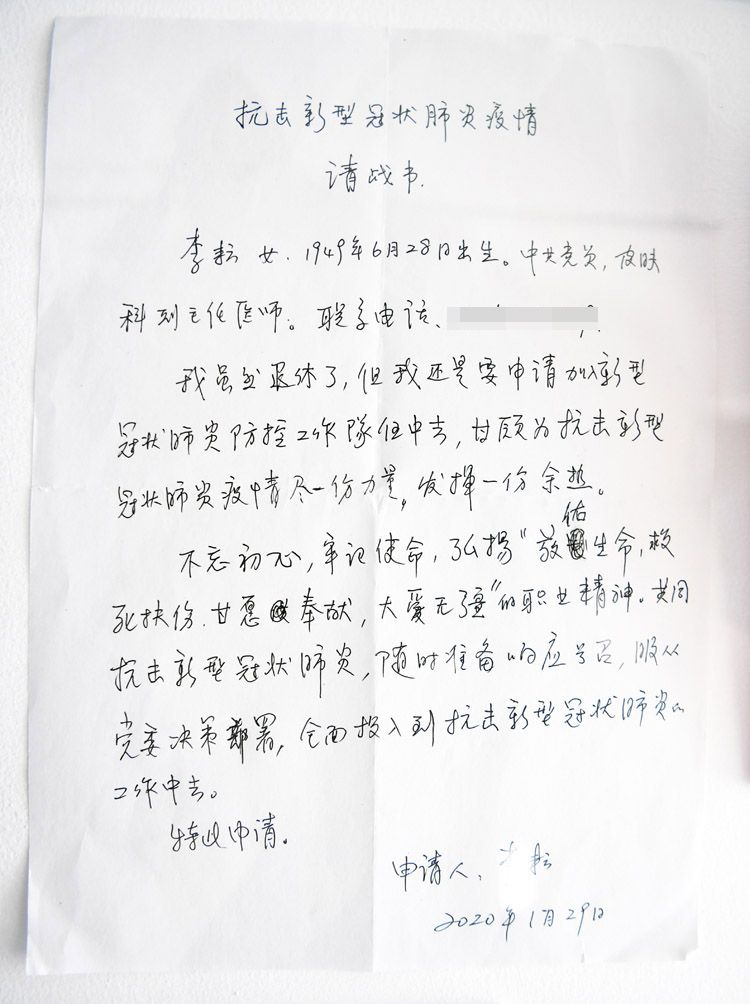 抗击新型冠状肺炎疫情
请战书.
李耘 女. 1949年6月28日出生。中共党员,皮肤
科副主任医师。联系电话、
我虽然退休了,但我还是要申请加入新型
冠状肺炎防控工作队伍中去,甘愿为抗击新型
冠状肺炎疫情尽一份力量,发挥一份余热。
不忘初心,牢记使命,弘扬“敬佑生命,救
死扶伤.甘愿奉献,大爱无疆”的职业精神。共同
抗击新型冠状肺炎,随时准备响应号召,服从
党委决策部署,全面投入到抗击新型冠状肺炎的
工作中去。
特此申请。
申请人、李耘
2020年1月29日